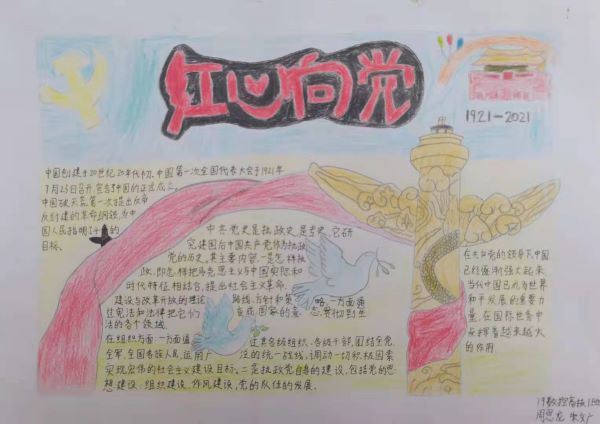 红心向党
1921-2021
中国创建于20世纪20年代初,中国第一次全国代表大会于1921年
7月23日召开,宣告中国的正式成立。
中国破天荒第一次提出反帝
反封建的革命纲领,为中
国人民指明了斗争的
目标。
中共党史是执政史,是专史,它研
究建国后中国共产党作为执政
党的历史。其主要内容:一是怎样执
政,即怎样把马克思主义与中国实际和
时代特征相结合,提出社会主义革命、
建设与改革开放的理论 路线、方针和策 略,一方面通
过宪法和法律把它们 变成国家的意 志,贯彻到生
活的各个领域
在组织方面,一方面通 过其各级组织、各级干部,团结全党、
全军、全国各族人民,运用广 泛的统一战线,调动一切积极因素
实现宏伟的社会主义建设目标。二是执政党自身的建设,包括党的思
想建设、组织建设、作风建设,党的队伍的发展。
在共产党的领导下,中国
已经逐渐强大起来,
当代中国已成为世界
和平发展的重要力
量,在国际世务中
发挥着越来越大
的作用